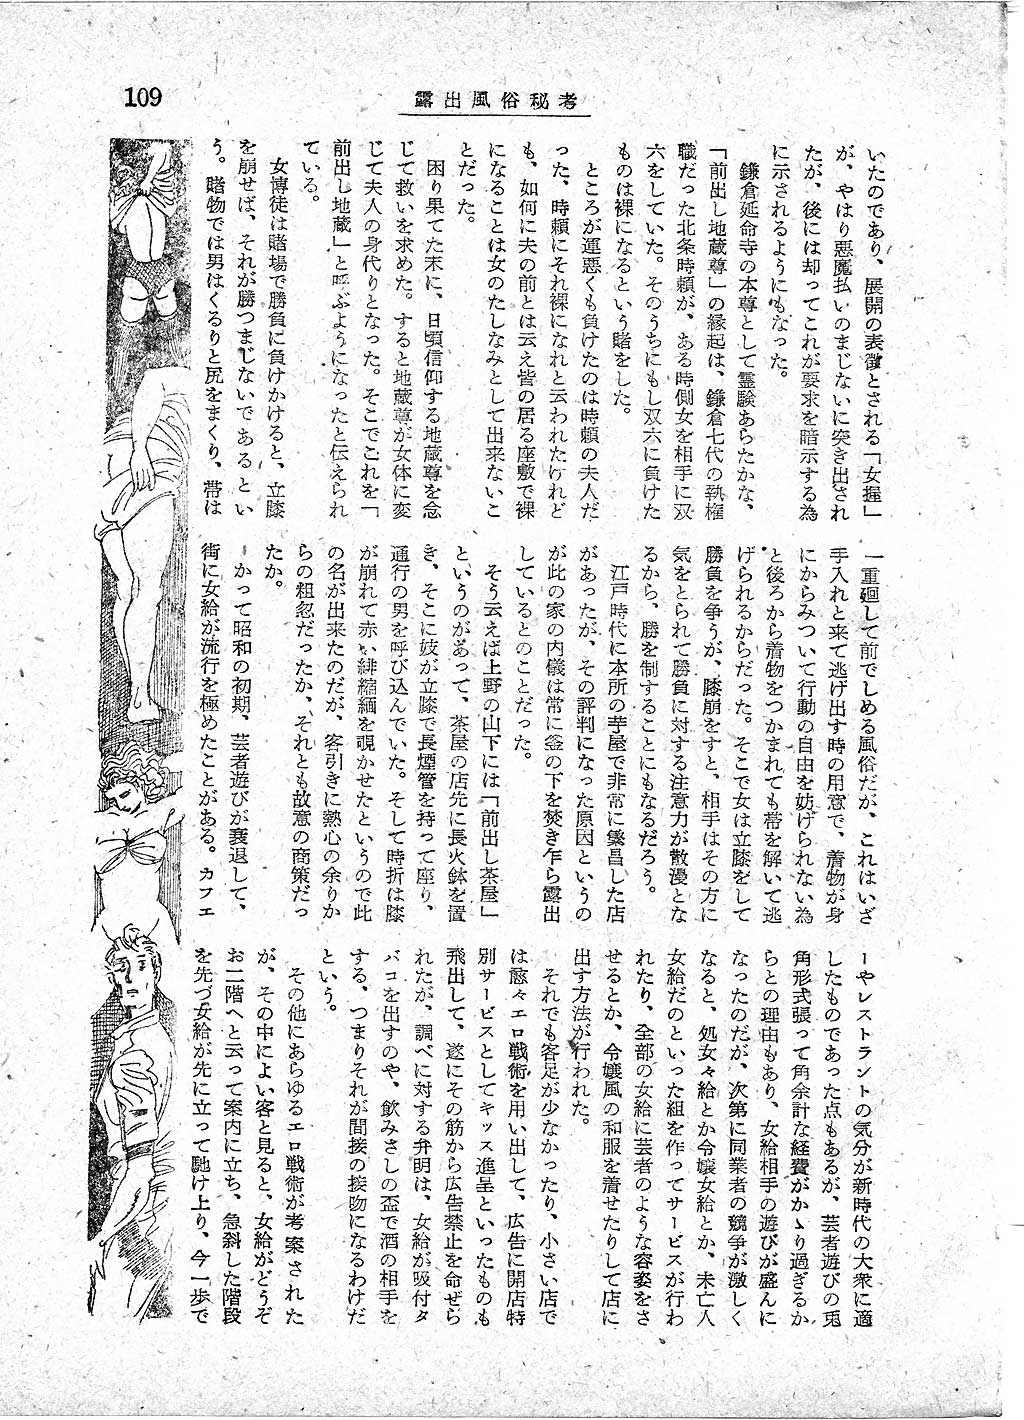 109
露出風俗秘考
いたのであり、展開の表徴とされる「女握」
が、やはり悪魔払いのまじないに突き出され
たが、後には却ってこれが要求を暗示する為
に示されるようにもなった。
鎌倉延命寺の本尊として霊験あらたかな、
「前出し地蔵尊」の縁起は、鎌倉七代の執権
職だった北条時頼が、ある時側女を相手に双
六をしていた。そのうちにもし双六に負けた
ものは裸になるという賭をした。
ところが運悪くも負けたのは時頼の夫人だ
った、時頼にそれ裸になれと云われたけれど
も、如何に夫の前とは云え皆の居る座敷で裸
になることは女のたしなみとして出来ないこ
とだった。
困り果てた末に、日頃信仰する地蔵尊を念
じて救いを求めた。すると地蔵尊が女体に変
じて夫人の身代りとなった。そこでこれを「
前出し地蔵」と呼ぶようになったと伝えられ
ている。
女博徒は賭場で勝負に負けかけると、立膝
を崩せば、それが勝つまじないであるとい
う。賭物では男はくるりと尻をまくり、帯は
一重廻して前でしめる風俗だが、これはいざ
手入れと来て逃げ出す時の用意で、着物が身
にからみついて行動の自由を妨げられない為
と後ろから着物をつかまれても帯を解いて逃
げられるからだった。そこで女は立膝をして
勝負を争うが、膝崩をすと、相手はその方に
気をとられて勝負に対する注意力が散漫とな
るから、勝を制することにもなるだろう。
江戸時代に本所の芋屋で非常に繁昌した店
があったが、その評判になった原因というの
が此の家の内儀は常に釜の下を焚き乍ら露出
しているとのことだった。
そう云えば上野の山下には「前出し茶屋」
というのがあって、茶屋の店先に長火鉢を置
き、そこに妓が立膝で長煙管を持って座り、
通行の男を呼び込んでいた。そして時折は膝
が崩れて赤い緋縮緬を覗かせたというので此
の名が出来たのだが、客引きに熱心の余りか
らの粗忽だったか、それとも故意の商策だっ
たか。
かって昭和の初期、芸者遊びが衰退して、
街に女給が流行を極めたことがある。カフェ
ーやレストラントの気分が新時代の大衆に適
したものであった点もあるが、芸者遊びの兎
角形式張って角余計な経費がかゝり過ぎるか
らとの理由もあり、女給相手の遊びが盛んに
なったのだが、次第に同業者の競争が激しく
なると、処女々給とか令嬢女給とか、未亡人
女給だのといった組を作ってサービスが行わ
れたり、全部の女給に芸者のような容姿をさ
せるとか、令嬢風の和服を着せたりして店に
出す方法が行われた。
それでも客足が少なかったり、小さい店で
は愈々エロ戦術を用い出して、広告に開店特
別サービスとしてキッス進呈といったものも
飛出して、遂にその筋から広告禁止を命ぜら
れたが、調べに対する弁明は、女給が吸付タ
バコを出すのや、飲みさしの盃で酒の相手を
する、つまりそれが間接の接吻になるわけだ
という。
その他にあらゆるエロ戦術が考案された
が、その中によい客と見ると、女給がどうぞ
お二階へと云って案内に立ち、急斜した階段
を先づ女給が先に立って馳け上り、今一歩で